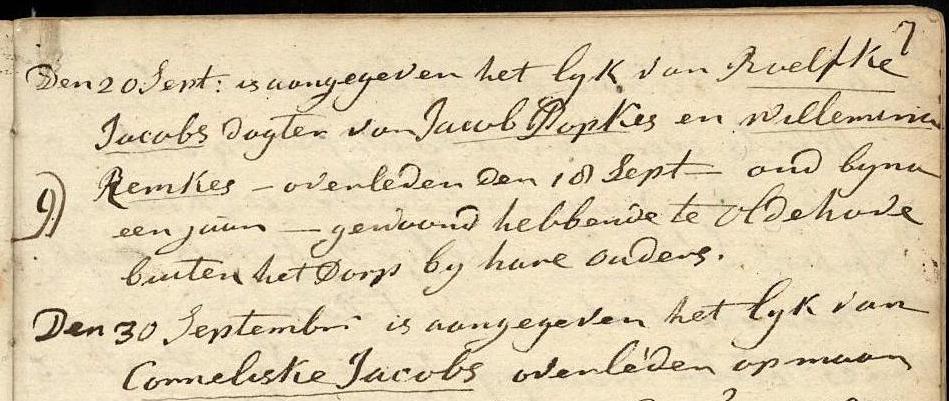 7
Den 20 Sept: is aangegeven het lyk van Roelfke
Jacobs dogter van Jacob Popkes en Willemina
9) Remkes - overleden den 18 Sept - oud byna
een jaar - gewoond hebbende te Oldehove
buiten het Dorp by hare ouders.
Den 30 September is aangegeven het lyk van
Corneliske Jacobs overleden op maan